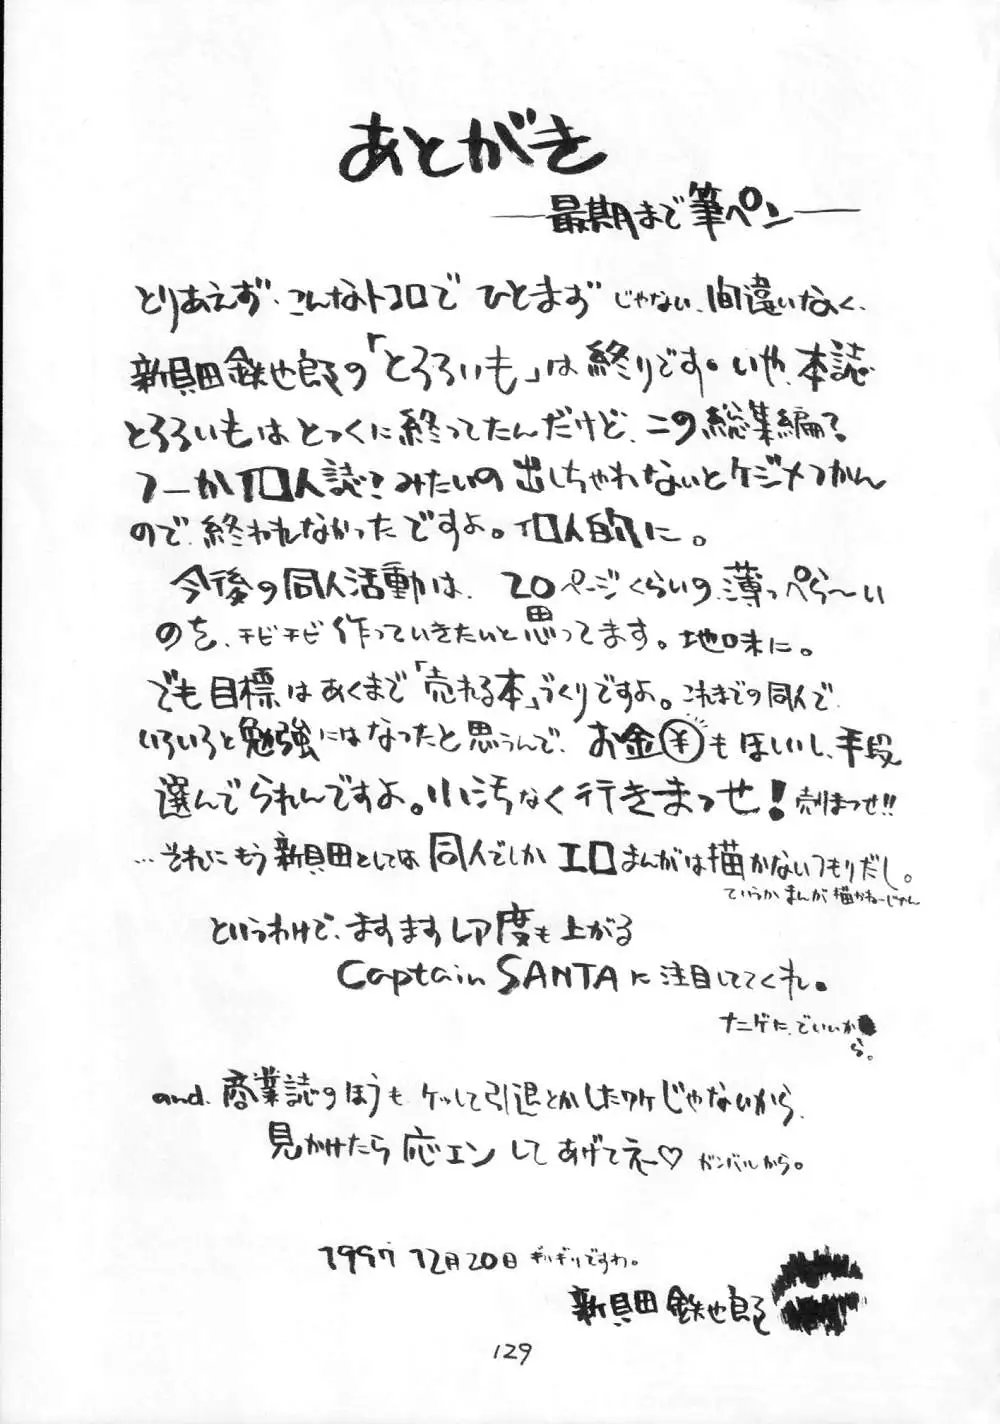 あとがき
―最期まで筆ペン―
とりあえず、こんなトコロで ひとまず じゃない、間違いなく、
新貝田鉄也郎の「とろろいも」は終りです。いや、本誌
とろろいもはとっくに終ってたんだけど、この総集編?
つーか個人誌?みたいの出しちゃわないとケジメつかん
ので、終われなかったですよ。個人的に。
今後の同人活動は、20ページくらいの、薄っぺら〜い
のを、チビチビ作っていきたいと思ってます。地味に。
でも目標はあくまで「売れる本」づくりですよ。これまでの同人で、
いろいろと勉強にはなったと思うんで、お金¥もほしいし、手段
選んでられんですよ。小汚なく行きまっせ!売りまっせ!!
…それにもう新貝田としては同人でしかエロまんがは描かないつもりだし。
ていうかまんが描かねーじゃん
というわけで、ますますレア度も上がる
Captain SANTAに注目しててくれ。
ナニゲに、でいいか
ら。
and、商業誌のほうも、ケッして引退とかしたワケじゃないから、
見かけたら応エンしてあげてえー♡ ガンバルから。
1997 12月20日 ギリギリですわ。
新貝田鉄也郎
129